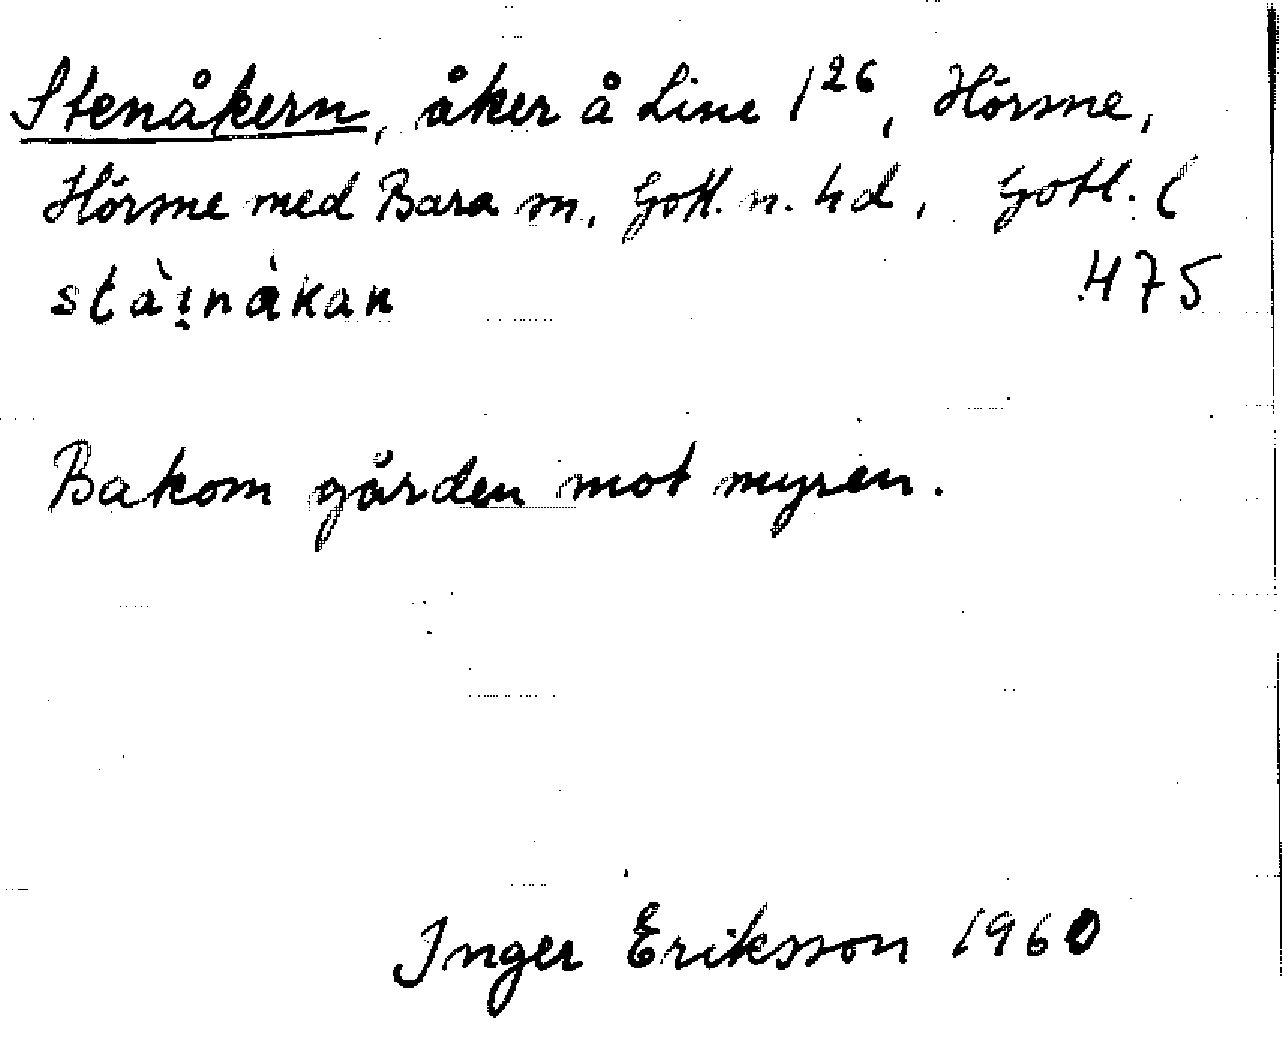 Stenåkern, åker å Line 1²⁶, Hörsne,
Hörsne med Bara sn, Gotl. n. hd, Gotl. l
stàịnàkan 475
Bakom gården mot myren.
Inger Eriksson 1960